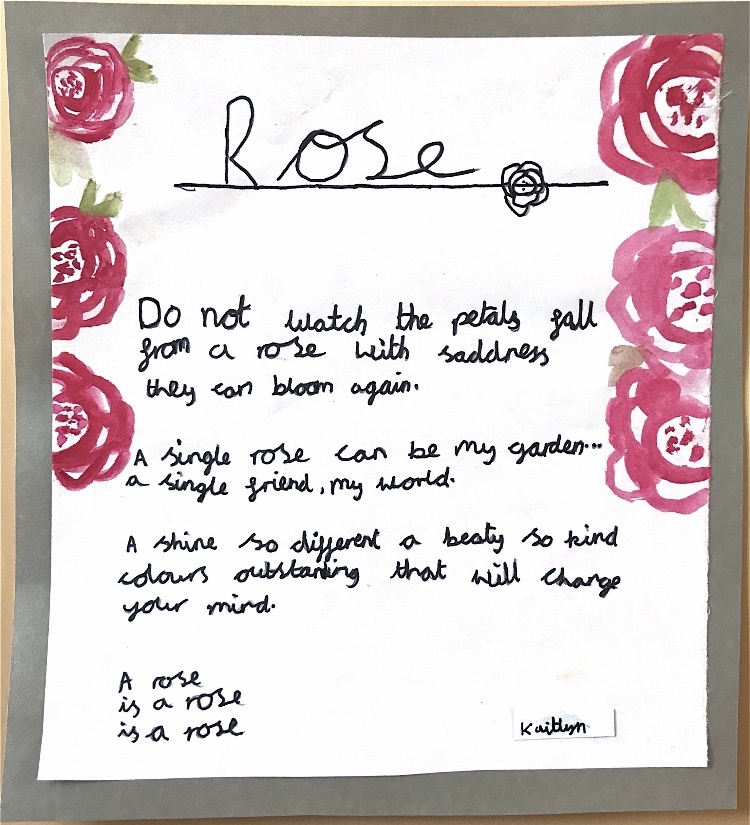 Rose
Do not watch the petals fall
from a rose with saddness
they can bloom again.
A single rose can be my garden...
a single friend, my world.
A shine so different a beaty so kind
colours outstanting that will change
your mind.
A rose
is a rose
is a rose
Kaitlyn